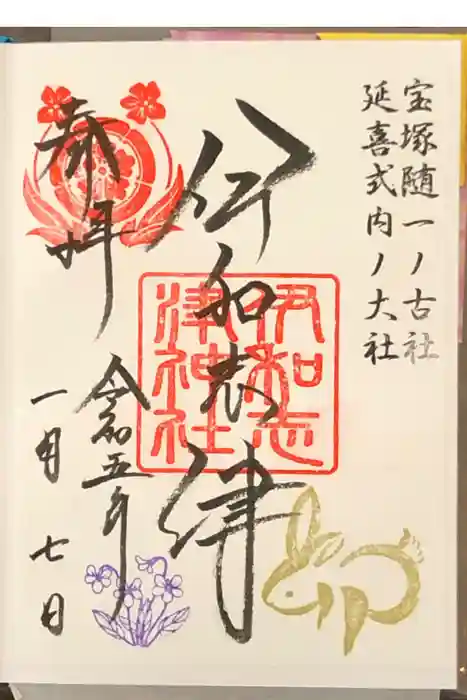 宝塚随一ノ古社
延喜式内ノ大社
伊和志津
伊和志
津神社
奉拝
令和五年
一月七日
卯